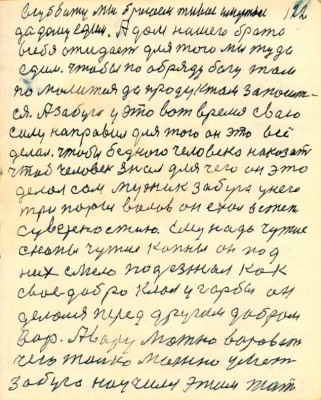 122
вслубвату мы бросаем
да дому едим. А дом нашего брато
себя ожидает для того мы туда
едим. чтобы по обряду богу там
по молится да продуктом запасит-
ся. А забуга у это вот время сваю
силу направил для того он это всё
делал. чтобы бедного человека наказат
чтоб человек знал для чего он это
делал сам мужик забуга у него
три пары валов он ехал в степ
с увереностию. Ему надь чужие
снопы чужие копны он под
них смело подезжал как
свое добро клал у гарбы он
делался перед другим добром
вор. А вару можно вороват
чего толко можно уметь
забуга научил этим